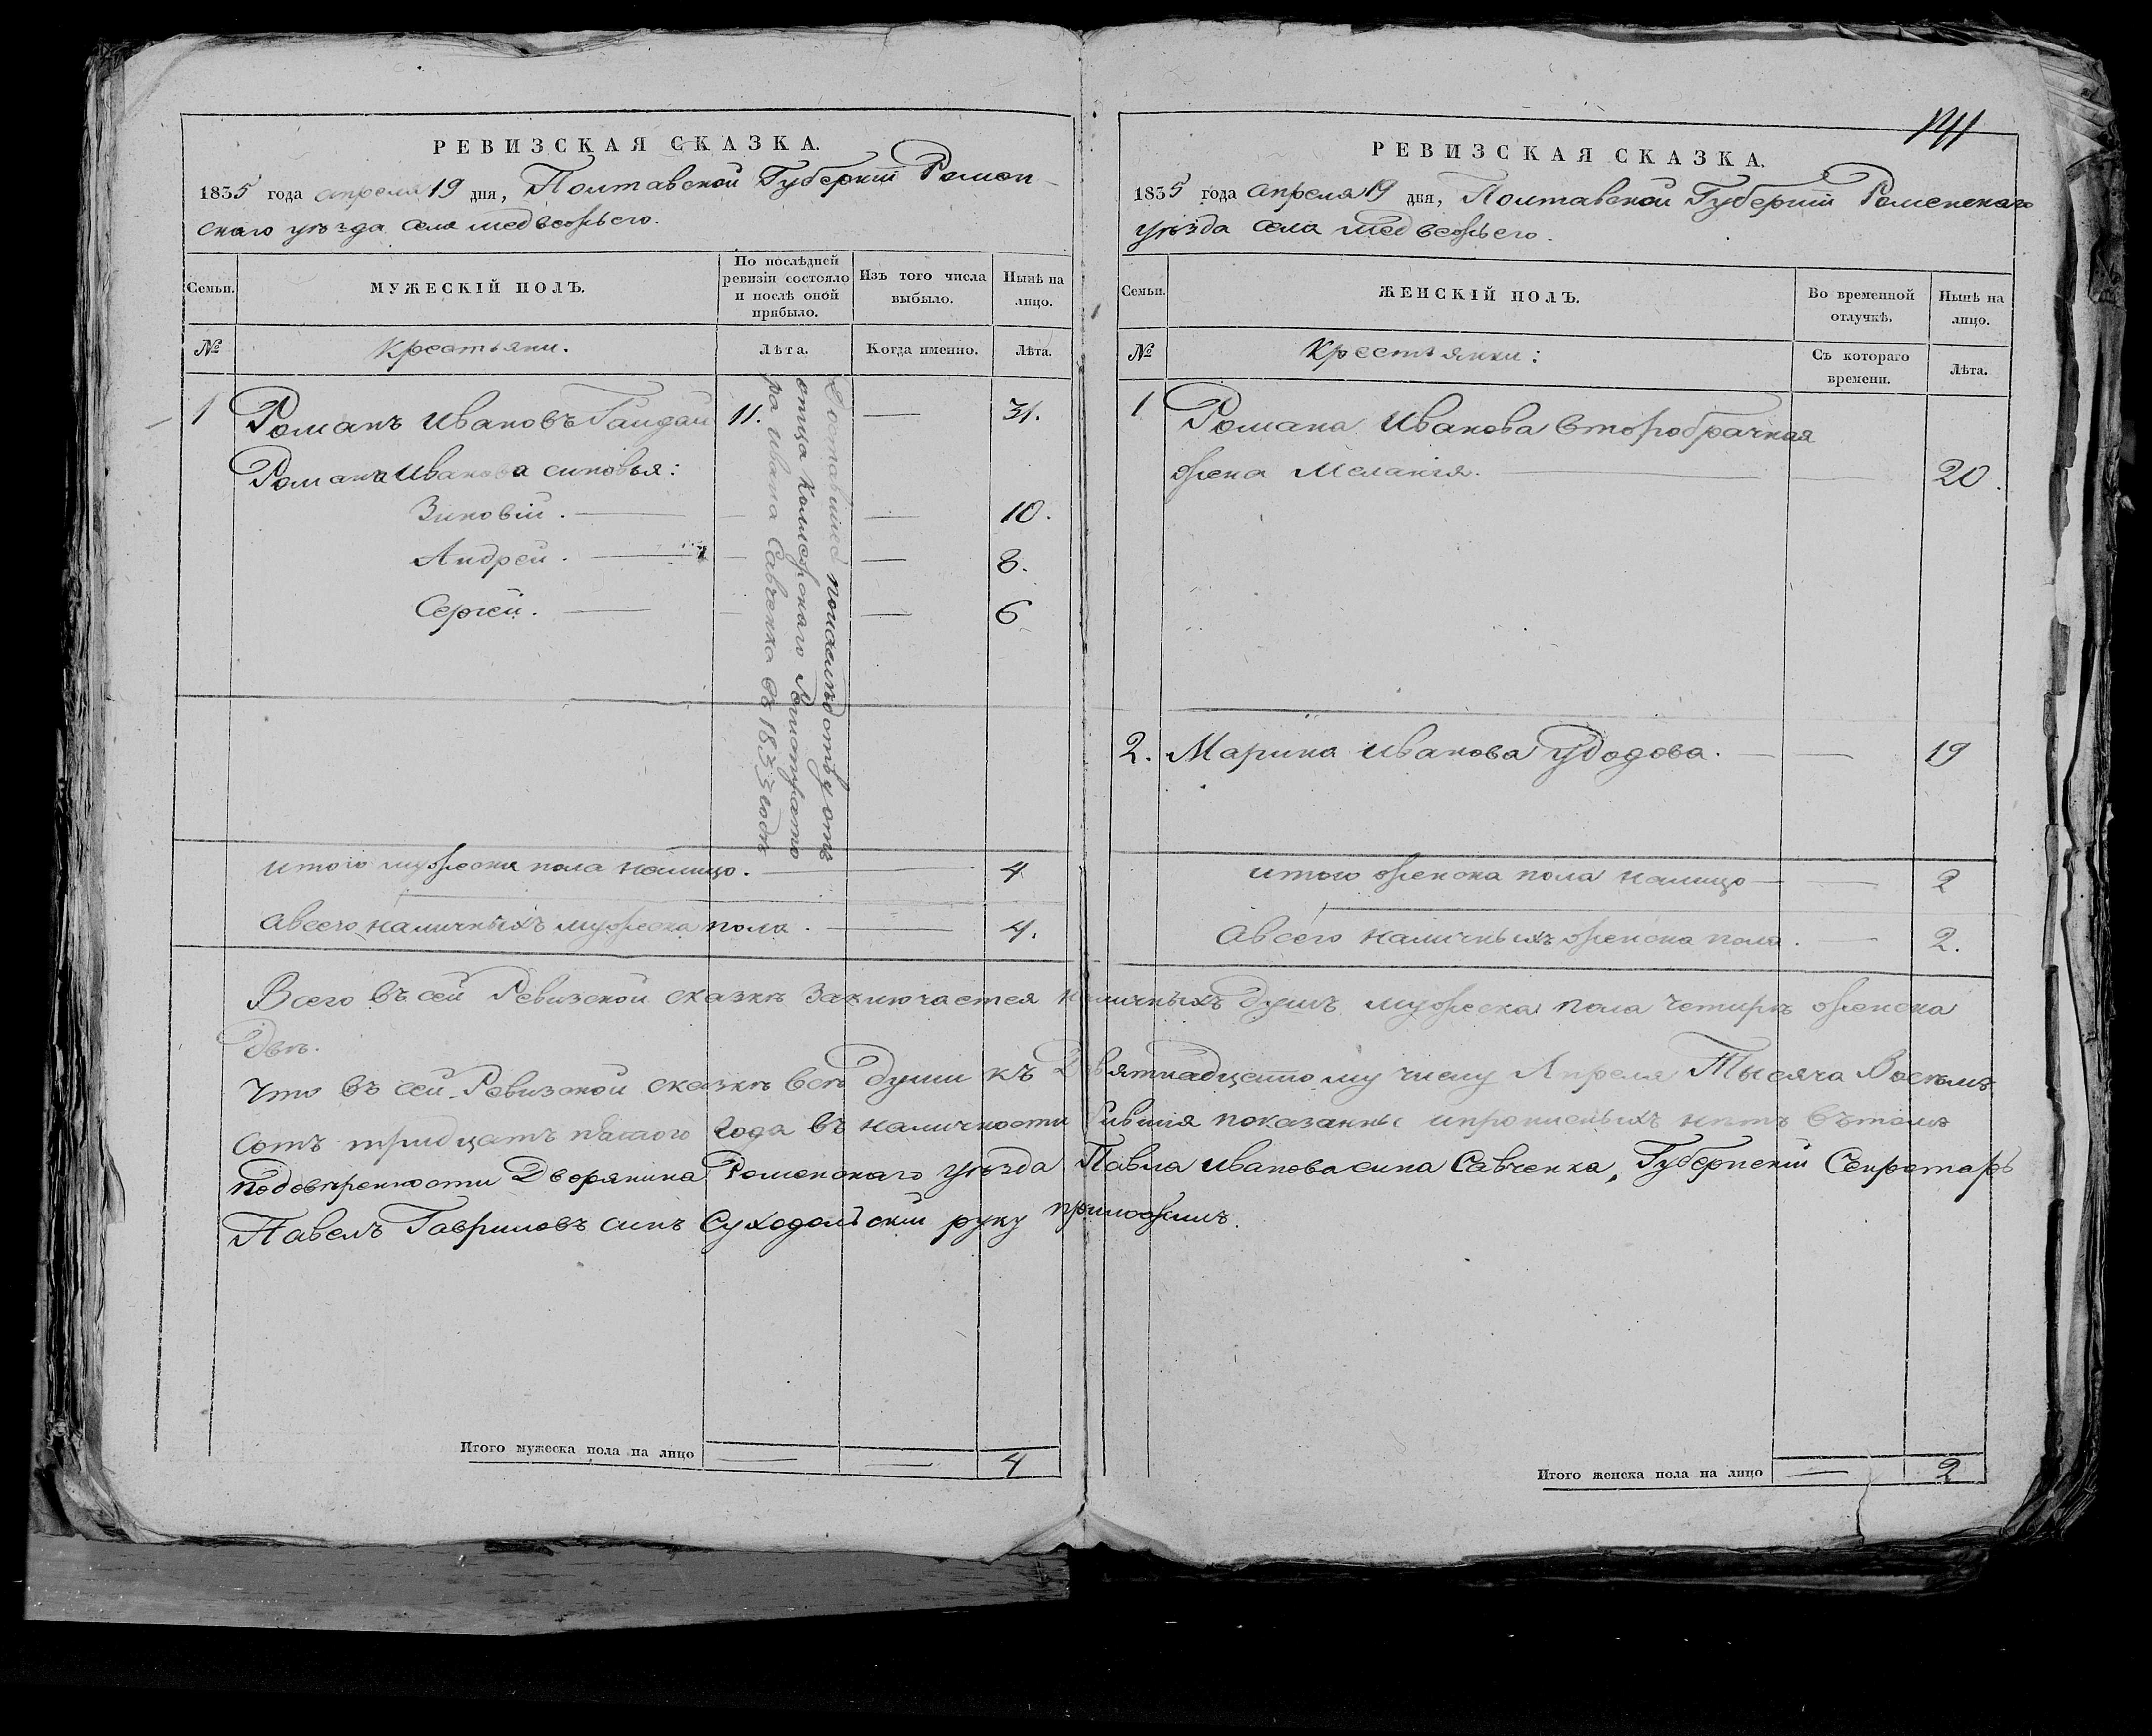 РЕВИЗСКАЯ СКАЗКА.
1835 года апреля 19 дня, Полтавской Губернїи Ромен-
скаго уѣзда села Медвежьего.
Семьи.
МУЖЕСКІЙ ПОЛЪ.
По послѣдней ревизіи состояло и послѣ оной прибыло.
Изъ того числа выбыло.
Нынѣ на лицо.
№
Крестьяни.
Лѣта.
Когда именно.
Лѣта.
1 Романъ Ивановъ Гайдай 11. — 31.
Романа Иванова синовья:
Зиновій. — — — 10.
Андрей. — — — 8.
Сергей. — — — 6
Доставшиес помаслѣдству отъ
отца Коллежскаго Регистрато
ра Ивана Савченка въ 1833 годѣ
итого мужеска пола налицо. — 4
авсего наличныхъ мужеска пола. — 4.
141
РЕВИЗСКАЯ СКАЗКА.
1835 года апреля 19 дня, Полтавской Губернїи Роменскаго
уѣзда села Медвежьего.
Семьи.
ЖЕНСКІЙ ПОЛЪ.
Во временной отлучкѣ.
Нынѣ на лицо.
№
Крестьянки:
Съ котораго времени.
Лѣта.
1 Романа Иванова второбрачная
жена Меланія. — — 20.
2. Марина Иванова Удодова. — — 19
итого женска пола налицо — — 2
авсего наличныхъ женска пола. — 2.
Всего въ сей Ревизской сказкѣ заключается наличныхъ душъ мужеска пола четирѣ женска
двѣ.
Что въ сей Ревизской сказкѣ всѣ души къ Девятнадцетому числу Апреля Тысяча Восемъ
сотъ тридцатъ пятого года въ наличности бившия показанны ипрописныхъ нѣтъ вътомъ
подовѣренности Дворянина Роменскаго уѣзда Павла Иванова сина Савченка, Губернскій Секретарь
Павелъ Гавриловъ синъ Суходольскій руку приложилъ.
Итого мужеска пола на лицо — — 4
Итого женска пола на лицо — 2